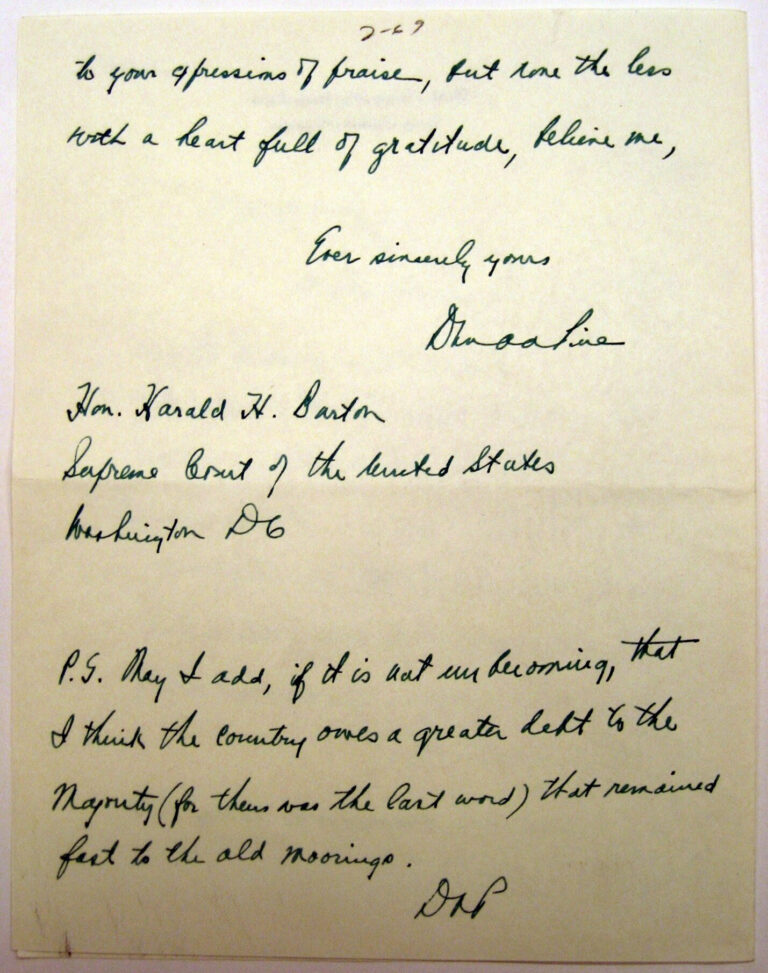 7-69
to your expressions of praise, but none the less
with a heart full of gratitude, believe me,
Ever sincerely yours
Pine
Hon. Harald H. Burton
Supreme Court of the United States
Washington DC
P.S. May I add, if it is not unbecoming, that
I think the country owes a greater debt to the
Majority (for theirs was the last word) that remained
fast to the old moorings.
DAP